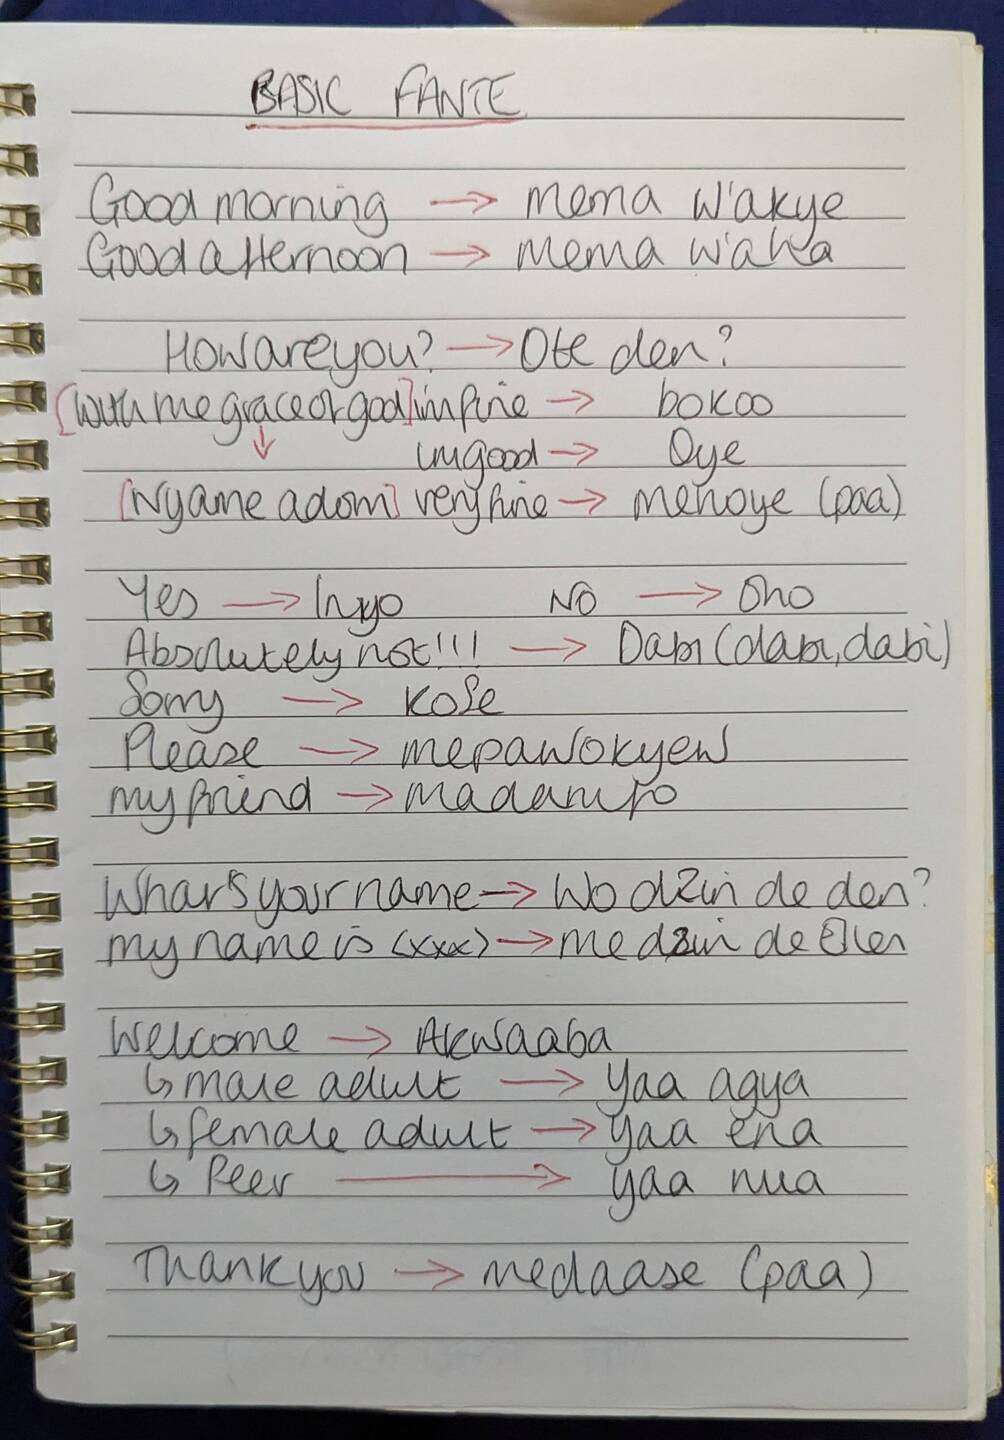 BASIC FANTE
Good morning → mema w'akye
Good afternoon → mema w'aha
How are you? → Ote den?
[with the grace of god] im fine → bokoo
↓ im good → Oye
[Nyame adom] very fine → mehoye (paa)
Yes → Inyo NO → Oho
Absolutely not!!! → Dabi (dabi, dabi)
Sorry → kose
Please → mepawokyew
my friend → madamfo
What's your name → Wo dzin de den?
my name is (xxx) → me dzin de Ellen
Welcome → Akwaaba
↳ male adult → yaa agya
↳ female adult → yaa ena
↳ Peer → yaa nua
Thank you → medaase (paa)